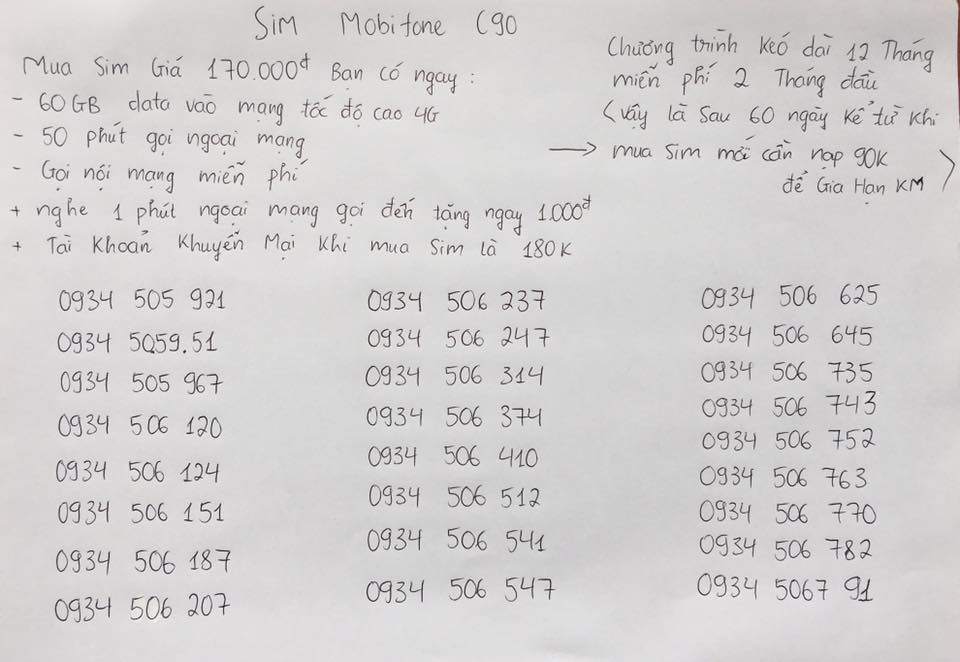 Sim Mobifone C90
Mua Sim Giá 170.000đ Bạn có ngay :
- 60GB data vào mạng tốc độ cao 4G
- 50 phút gọi ngoại mạng
- Gọi nội mạng miễn phí
+ nghe 1 phút ngoại mạng gọi đến tặng ngay 1.000đ
+ Tài Khoản Khuyến Mại Khi mua Sim là 180K
Chương trình kéo dài 12 Tháng
miễn phí 2 Tháng đầu
(vậy là Sau 60 ngày kể từ khi
→ mua Sim mới cần nạp 90K
để Gia Hạn KM)
0934 505 921
0934 5059.51
0934 505 967
0934 506 120
0934 506 124
0934 506 151
0934 506 187
0934 506 207
0934 506 237
0934 506 247
0934 506 314
0934 506 374
0934 506 410
0934 506 512
0934 506 541
0934 506 547
0934 506 625
0934 506 645
0934 506 735
0934 506 743
0934 506 752
0934 506 763
0934 506 770
0934 506 782
0934 5067 91